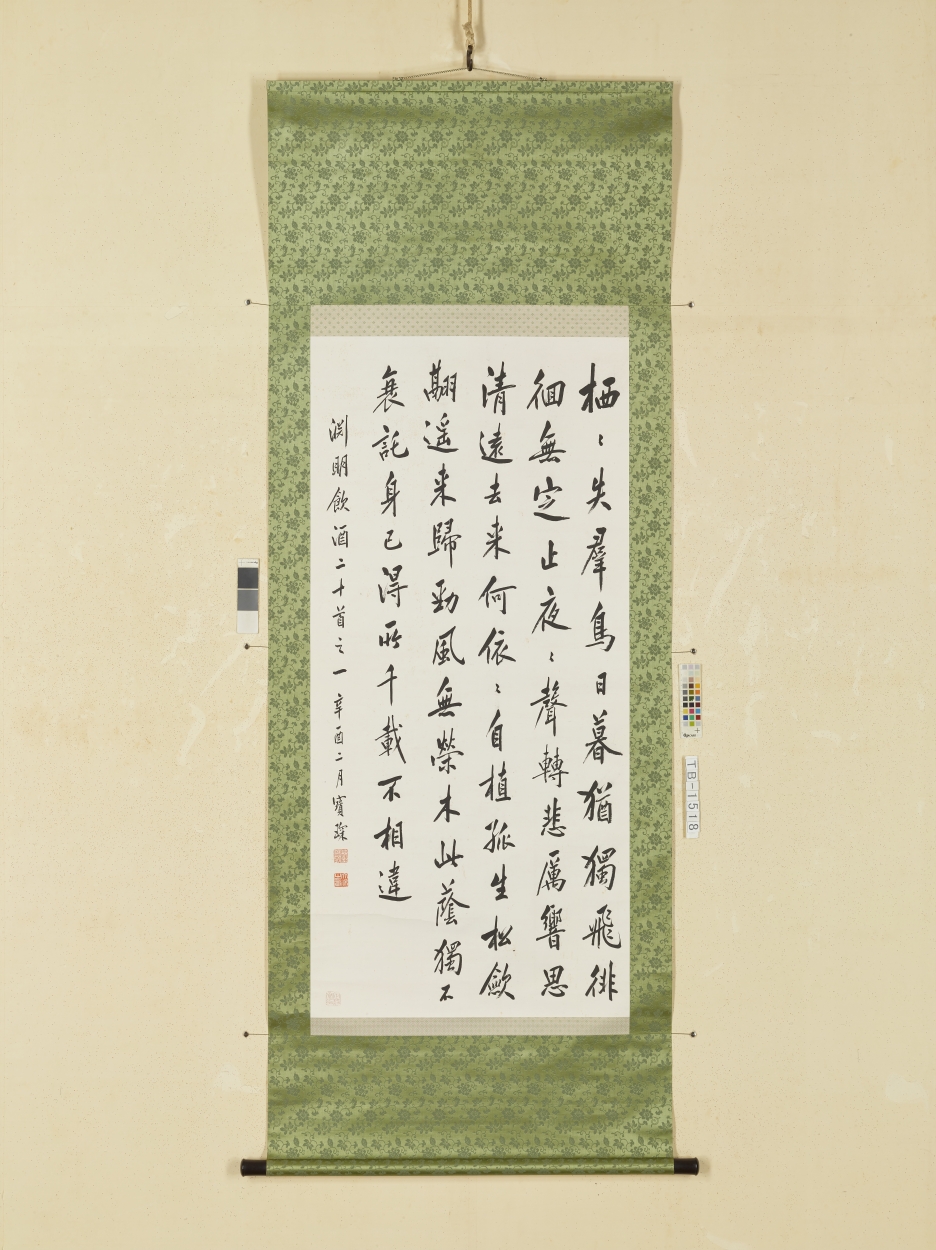 栖〻失羣鳥日暮猶獨飛徘
徊無定止夜〻聲轉悲厲響思
清遠去来何依〻自植孤生松歛
翮遥来歸勁風無榮木此蔭獨不
衰託身已得所千載不相違
淵明飲酒二十首之一 辛酉二月寶琛
TB-1518